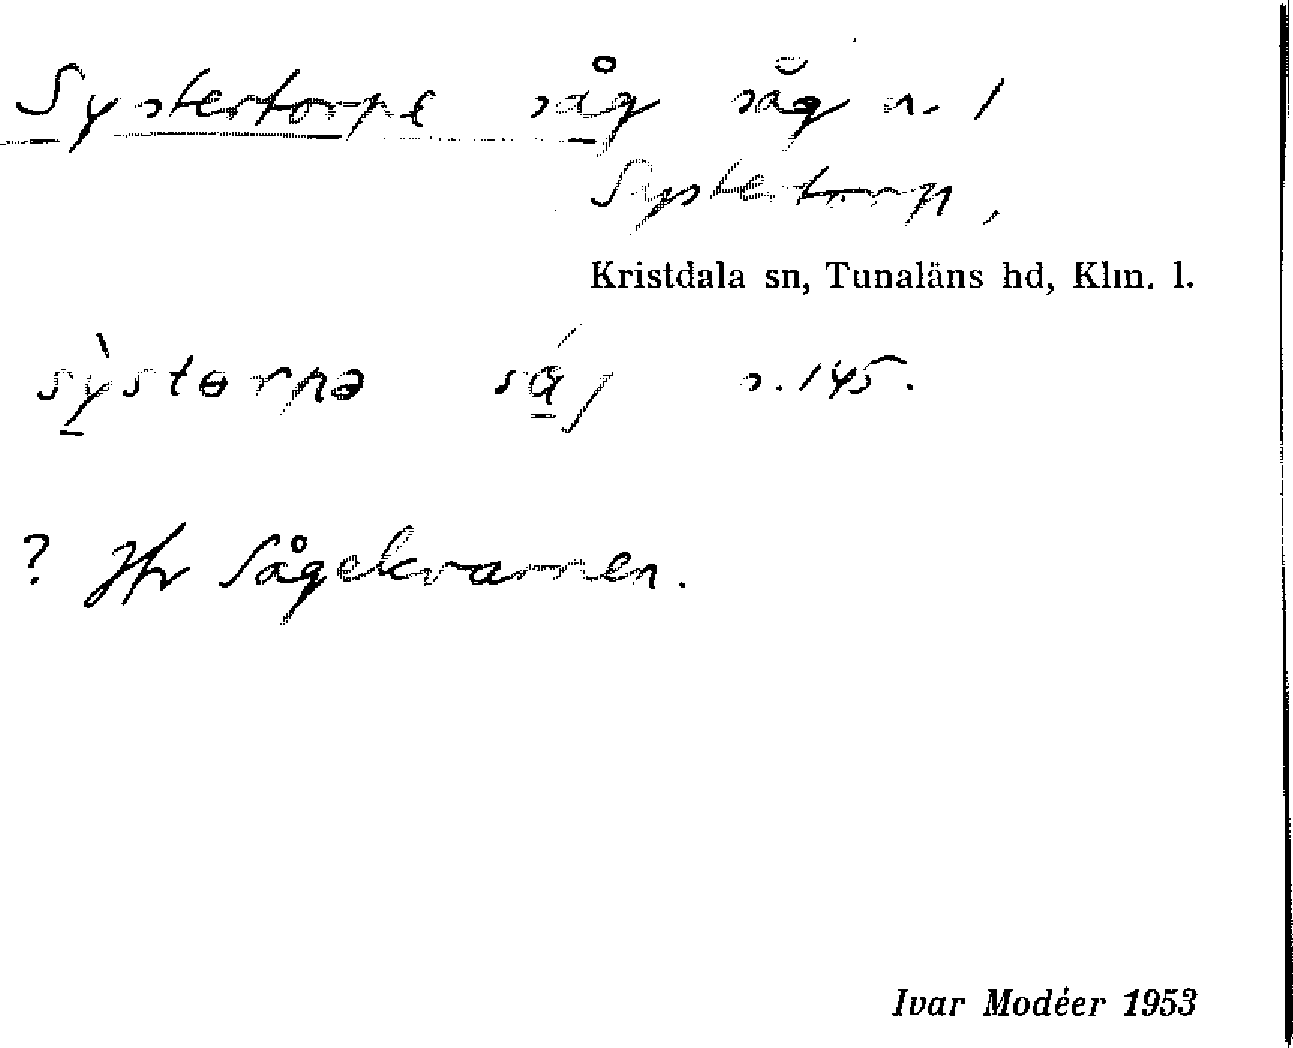 Systertorps såg såg n. 1
Systertorp,
Kristdala sn, Tunaläns hd, Klm. l.
sỳstərpə sáj s. 145.
? Jfr Sågekvarnen.
Ivar Modéer 1953